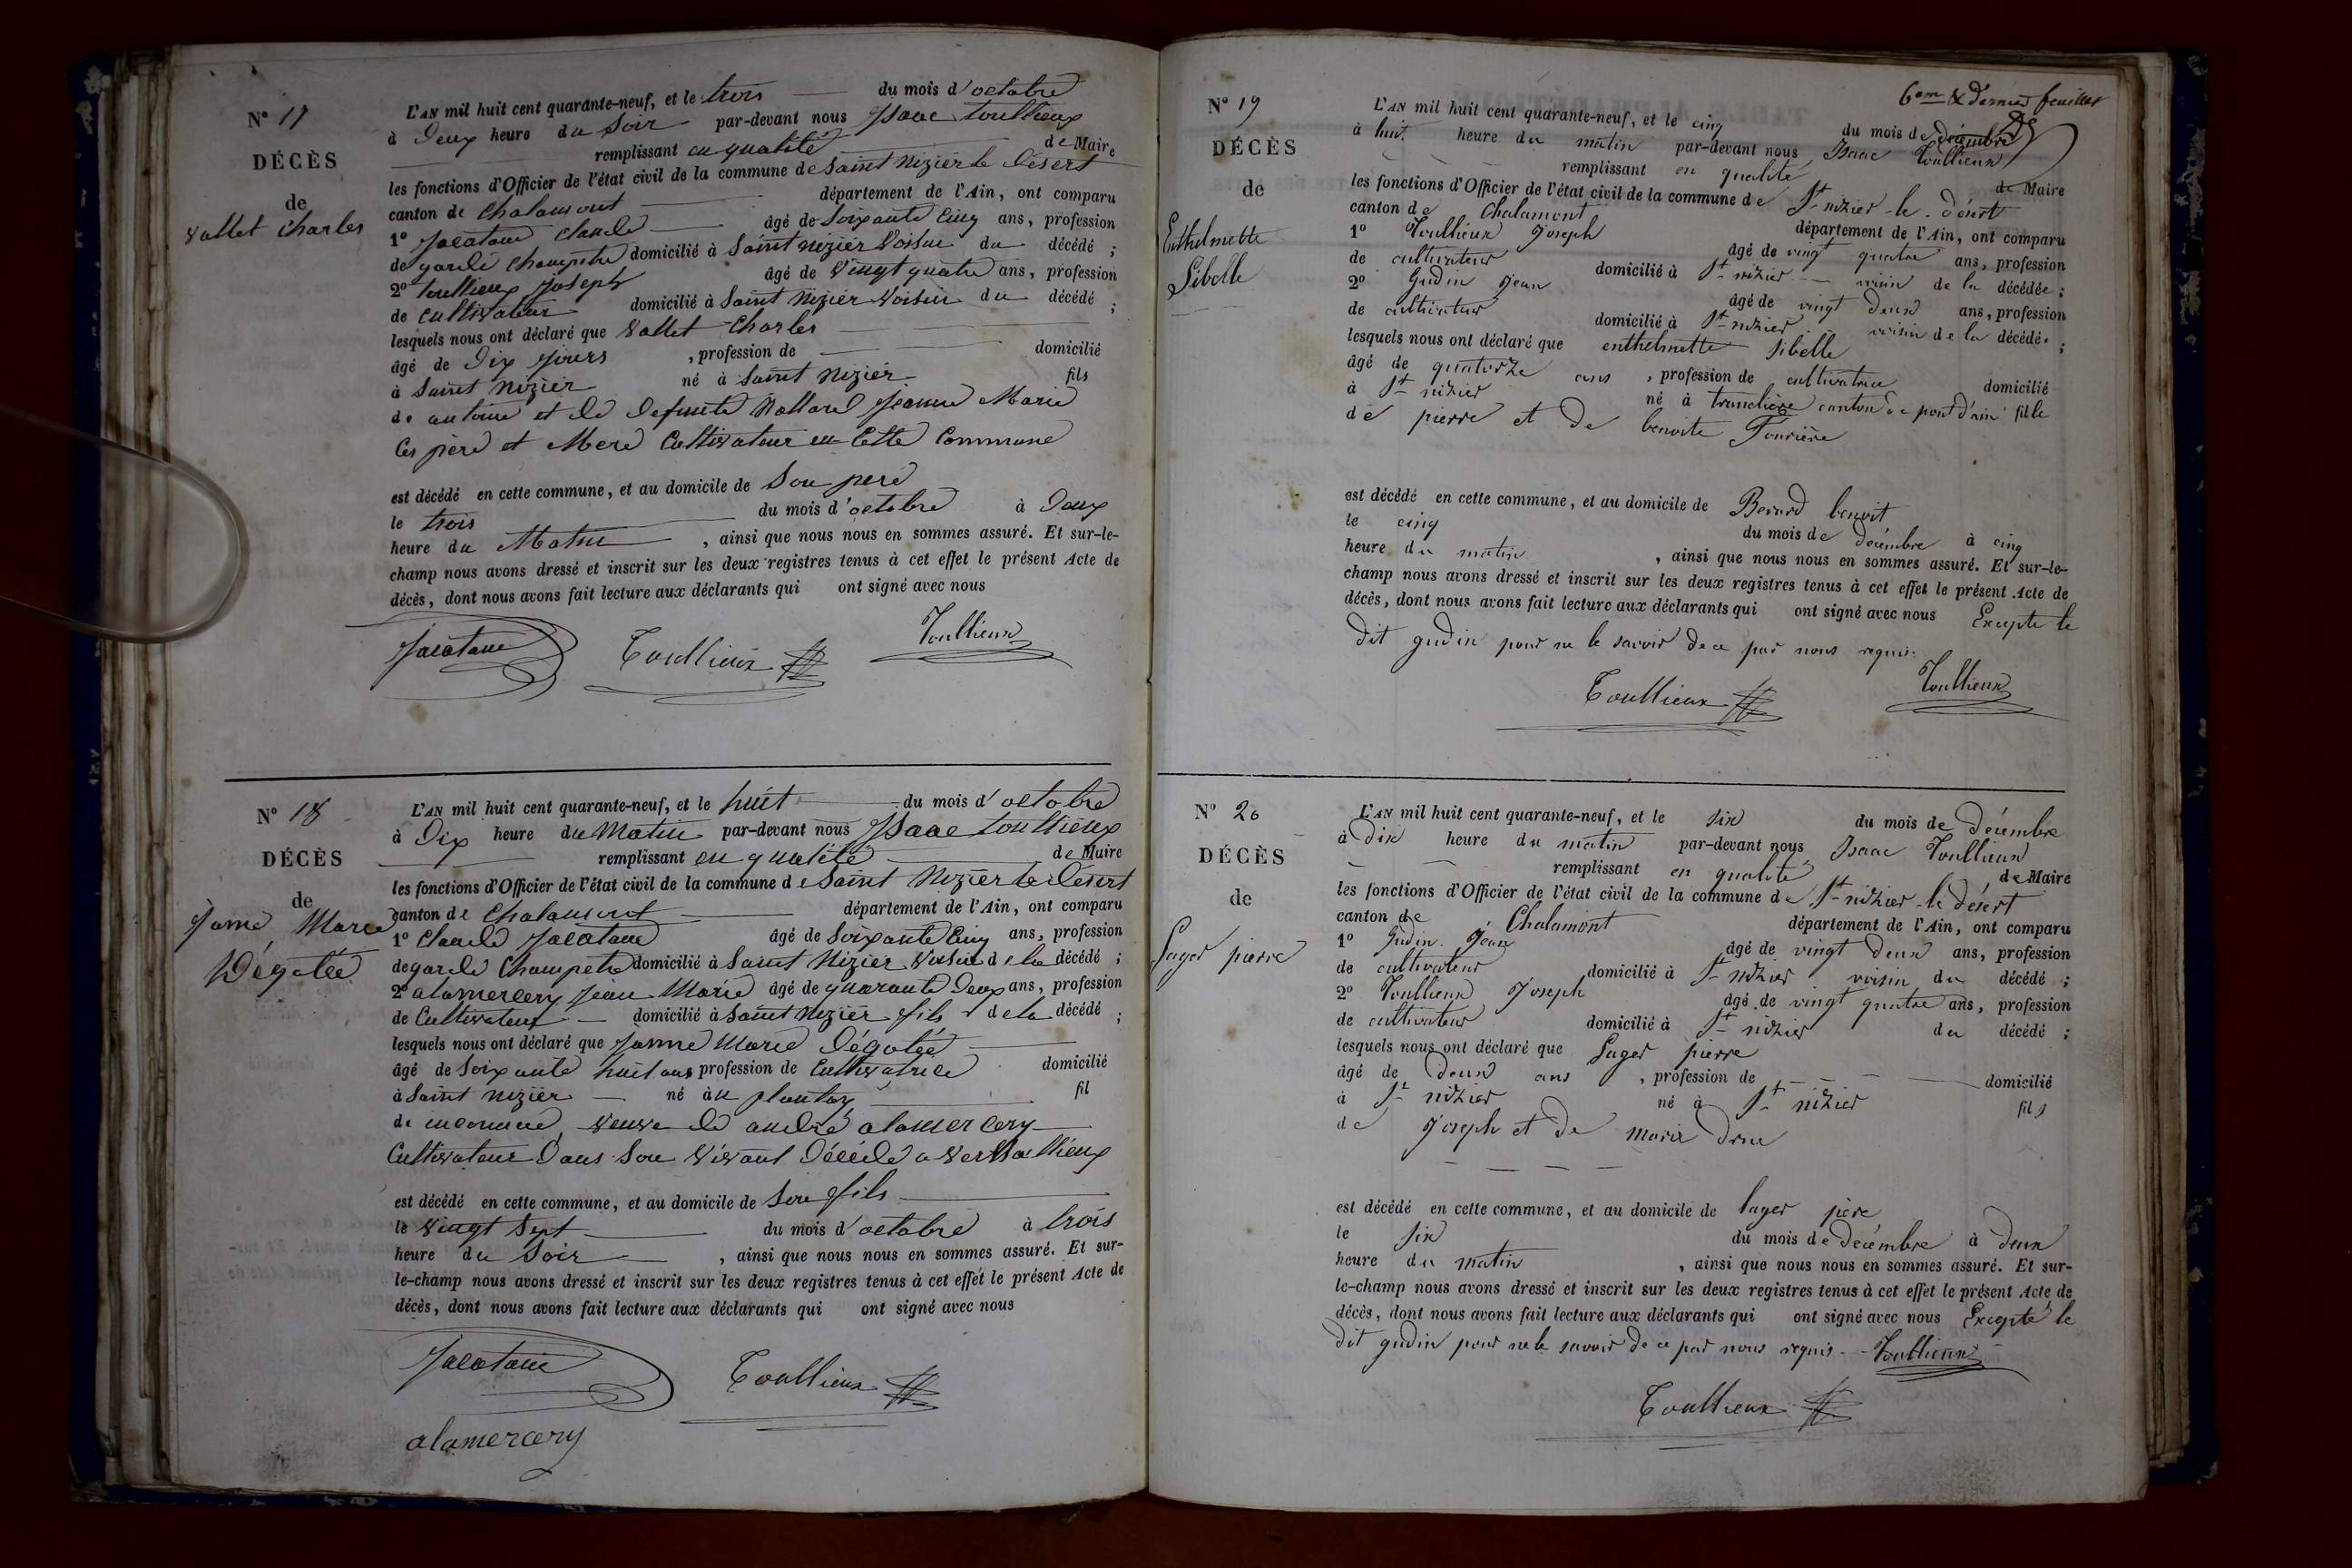 N° 17
DÉCÈS
de
vallet Charles
L'AN mil huit cent quarante-neuf, et le trois du mois d'octobre
à Deux heure du Soir par-devant nous Isaac toullieux
remplissant en qualité de Maire
les fonctions d'Officier de l'état civil de la commune de Saint Nizier le Désert
canton de Chalamont département de l'Ain, ont comparu
1° Claude âgé de Soixante Cinq ans, profession
de garde Champetre domicilié à Saint nizier Voisin du décédé ;
2° toullieux Joseph âgé de Vingt quatre ans, profession
de cultivateur domicilié à Saint Nizier Voisin du décédé ;
lesquels nous ont déclaré que vallet Charles
âgé de Dix Jours , profession de domicilié
à Saint Nizier né à Saint Nizier fils
de antoine et de defunte Jeanne Marie
Ces père et Mere Cultivateur en Cette Commune
est décédé en cette commune, et au domicile de Son pere
le trois du mois d'octobre à Deux
heure du Matin , ainsi que nous nous en sommes assuré. Et sur-le-
champ nous avons dressé et inscrit sur les deux registres tenus à cet effet le présent Acte de
décès, dont nous avons fait lecture aux déclarants qui ont signé avec nous
Toullieux Toullieux
N° 18
DÉCÈS
de
Janne Marie
Dégolée
L'AN mil huit cent quarante-neuf, et le huit du mois d'octobre
à Dix heure du Matin par-devant nous Isaac toullieux
remplissant en qualité de Maire
les fonctions d'Officier de l'état civil de la commune de Saint Nizier le Désert
canton de Chalamont département de l'Ain, ont comparu
1° Claude âgé de Soixante Cinq ans, profession
de garde Champetre domicilié à Saint Nizier Voisin de la décédé ;
2° alamercery Jean Marie âgé de quarante Deux ans, profession
de Cultivateur domicilié à Saint Nizier fils de la décédé ;
lesquels nous ont déclaré que Janne Marie Dégolée
âgé de Soixante huit ans profession de Cultivatrice domicilié
à Saint Nizier né au plantay fil
de inconnue, veuve de andré alamercery
Cultivateur Dans Son Vivant Décédé a Versailleux
est décédé en cette commune, et au domicile de Son fils
le Vingt Sept du mois d'octobre à trois
heure du Soir , ainsi que nous nous en sommes assuré. Et sur-
le-champ nous avons dressé et inscrit sur les deux registres tenus à cet effet le présent Acte de
décès, dont nous avons fait lecture aux déclarants qui ont signé avec nous
Toullieux
alamercery
6em & dernier feuillet
N° 19
DÉCÈS
de
Enthelmette
Sibelle
L'AN mil huit cent quarante-neuf, et le cinq du mois de décembre
à huit heure du matin par-devant nous Isaac Toullieux
remplissant en qualité de Maire
les fonctions d'Officier de l'état civil de la commune de St nizier-le-désert
canton de Chalamont département de l'Ain, ont comparu
1° Toullieux Joseph âgé de vingt quatre ans, profession
de cultivateur domicilié à St nizier voisin de la décédée ;
2° Gudin Jean âgé de vingt deux ans, profession
de cultivateur domicilié à St nizier voisin de la décédé ;
lesquels nous ont déclaré que enthelmette sibelle
âgé de quatorze ans , profession de cultivatrice domicilié
à St nizier né à tranclière canton de pont d'ain fille
de pierre et de benoite
est décédé en cette commune, et au domicile de Berard benoit
le cinq du mois de décembre à cinq
heure du matin , ainsi que nous nous en sommes assuré. Et sur-le-
champ nous avons dressé et inscrit sur les deux registres tenus à cet effet le présent Acte de
décès, dont nous avons fait lecture aux déclarants qui ont signé avec nous Excepte le
dit gudin pour ne le savoir de ce par nous requis.
Toullieux Toullieux
N° 20
DÉCÈS
de
Lager pierre
L'AN mil huit cent quarante-neuf, et le six du mois de Décembre
à dix heure du matin par-devant nous Isaac Toullieux
remplissant en qualité de Maire
les fonctions d'Officier de l'état civil de la commune de St nizier-le désert
canton de Chalamont département de l'Ain, ont comparu
1° Gudin Jean âgé de vingt deux ans, profession
de cultivateur domicilié à St nizier voisin du décédé ;
2° Toullieux Joseph âgé de vingt quatre ans, profession
de cultivateur domicilié à St nizier du décédé ;
lesquels nous ont déclaré que Lager pierre
âgé de deux ans , profession de domicilié
à St nizier né à St nizier fils
de Joseph et de marie
est décédé en cette commune, et au domicile de lager père
le six du mois de décembre à deux
heure du matin , ainsi que nous nous en sommes assuré. Et sur-
le-champ nous avons dressé et inscrit sur les deux registres tenus à cet effet le présent Acte de
décès, dont nous avons fait lecture aux déclarants qui ont signé avec nous Excepté le
dit gudin pour ne le savoir de ce par nous requis. Toullieux
Toullieux